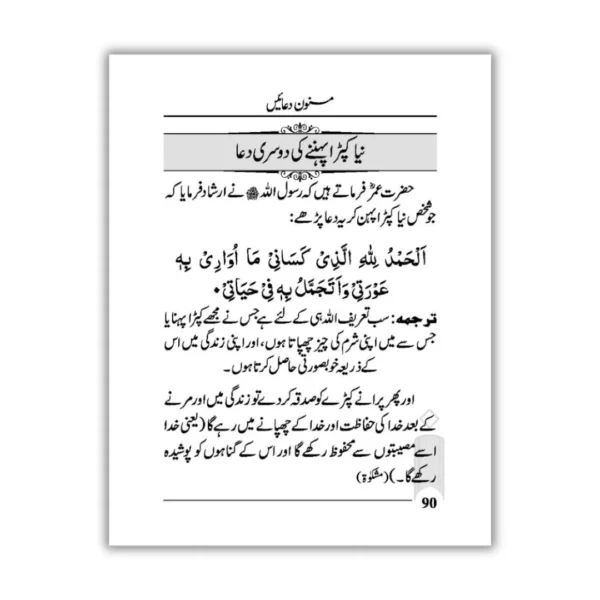 مسنون دعائیں
نیا کپڑا پہننے کی دوسری دعا
حضرت عمرؓ فرماتے ہیں کہ رسول اللہ ﷺ نے ارشاد فرمایا کہ
جو شخص نیا کپڑا پہن کر یہ دعا پڑھے:
اَلْحَمْدُ لِلّٰهِ الَّذِیْ كَسَانِیْ مَا اُوَارِیْ بِهٖ
عَوْرَتِیْ وَاَتَجَمَّلُ بِهٖ فِیْ حَیَاتِیْ۰
ترجمه: سب تعریف اللہ ہی کے لئے ہے جس نے مجھے کپڑا پہنایا
جس سے میں اپنی شرم کی چیز چھپاتا ہوں، اور اپنی زندگی میں اس
کے ذریعہ خوبصورتی حاصل کرتا ہوں۔
اور پھر پرانے کپڑے کو صدقہ کر دے تو زندگی میں اور مرنے
کے بعد خدا کی حفاظت اور خدا کے چھپانے میں رہے گا (یعنی خدا
اسے مصیبتوں سے محفوظ رکھے گا اور اس کے گناہوں کو پوشیدہ
رکھے گا۔) (مشکوٰۃ)
90